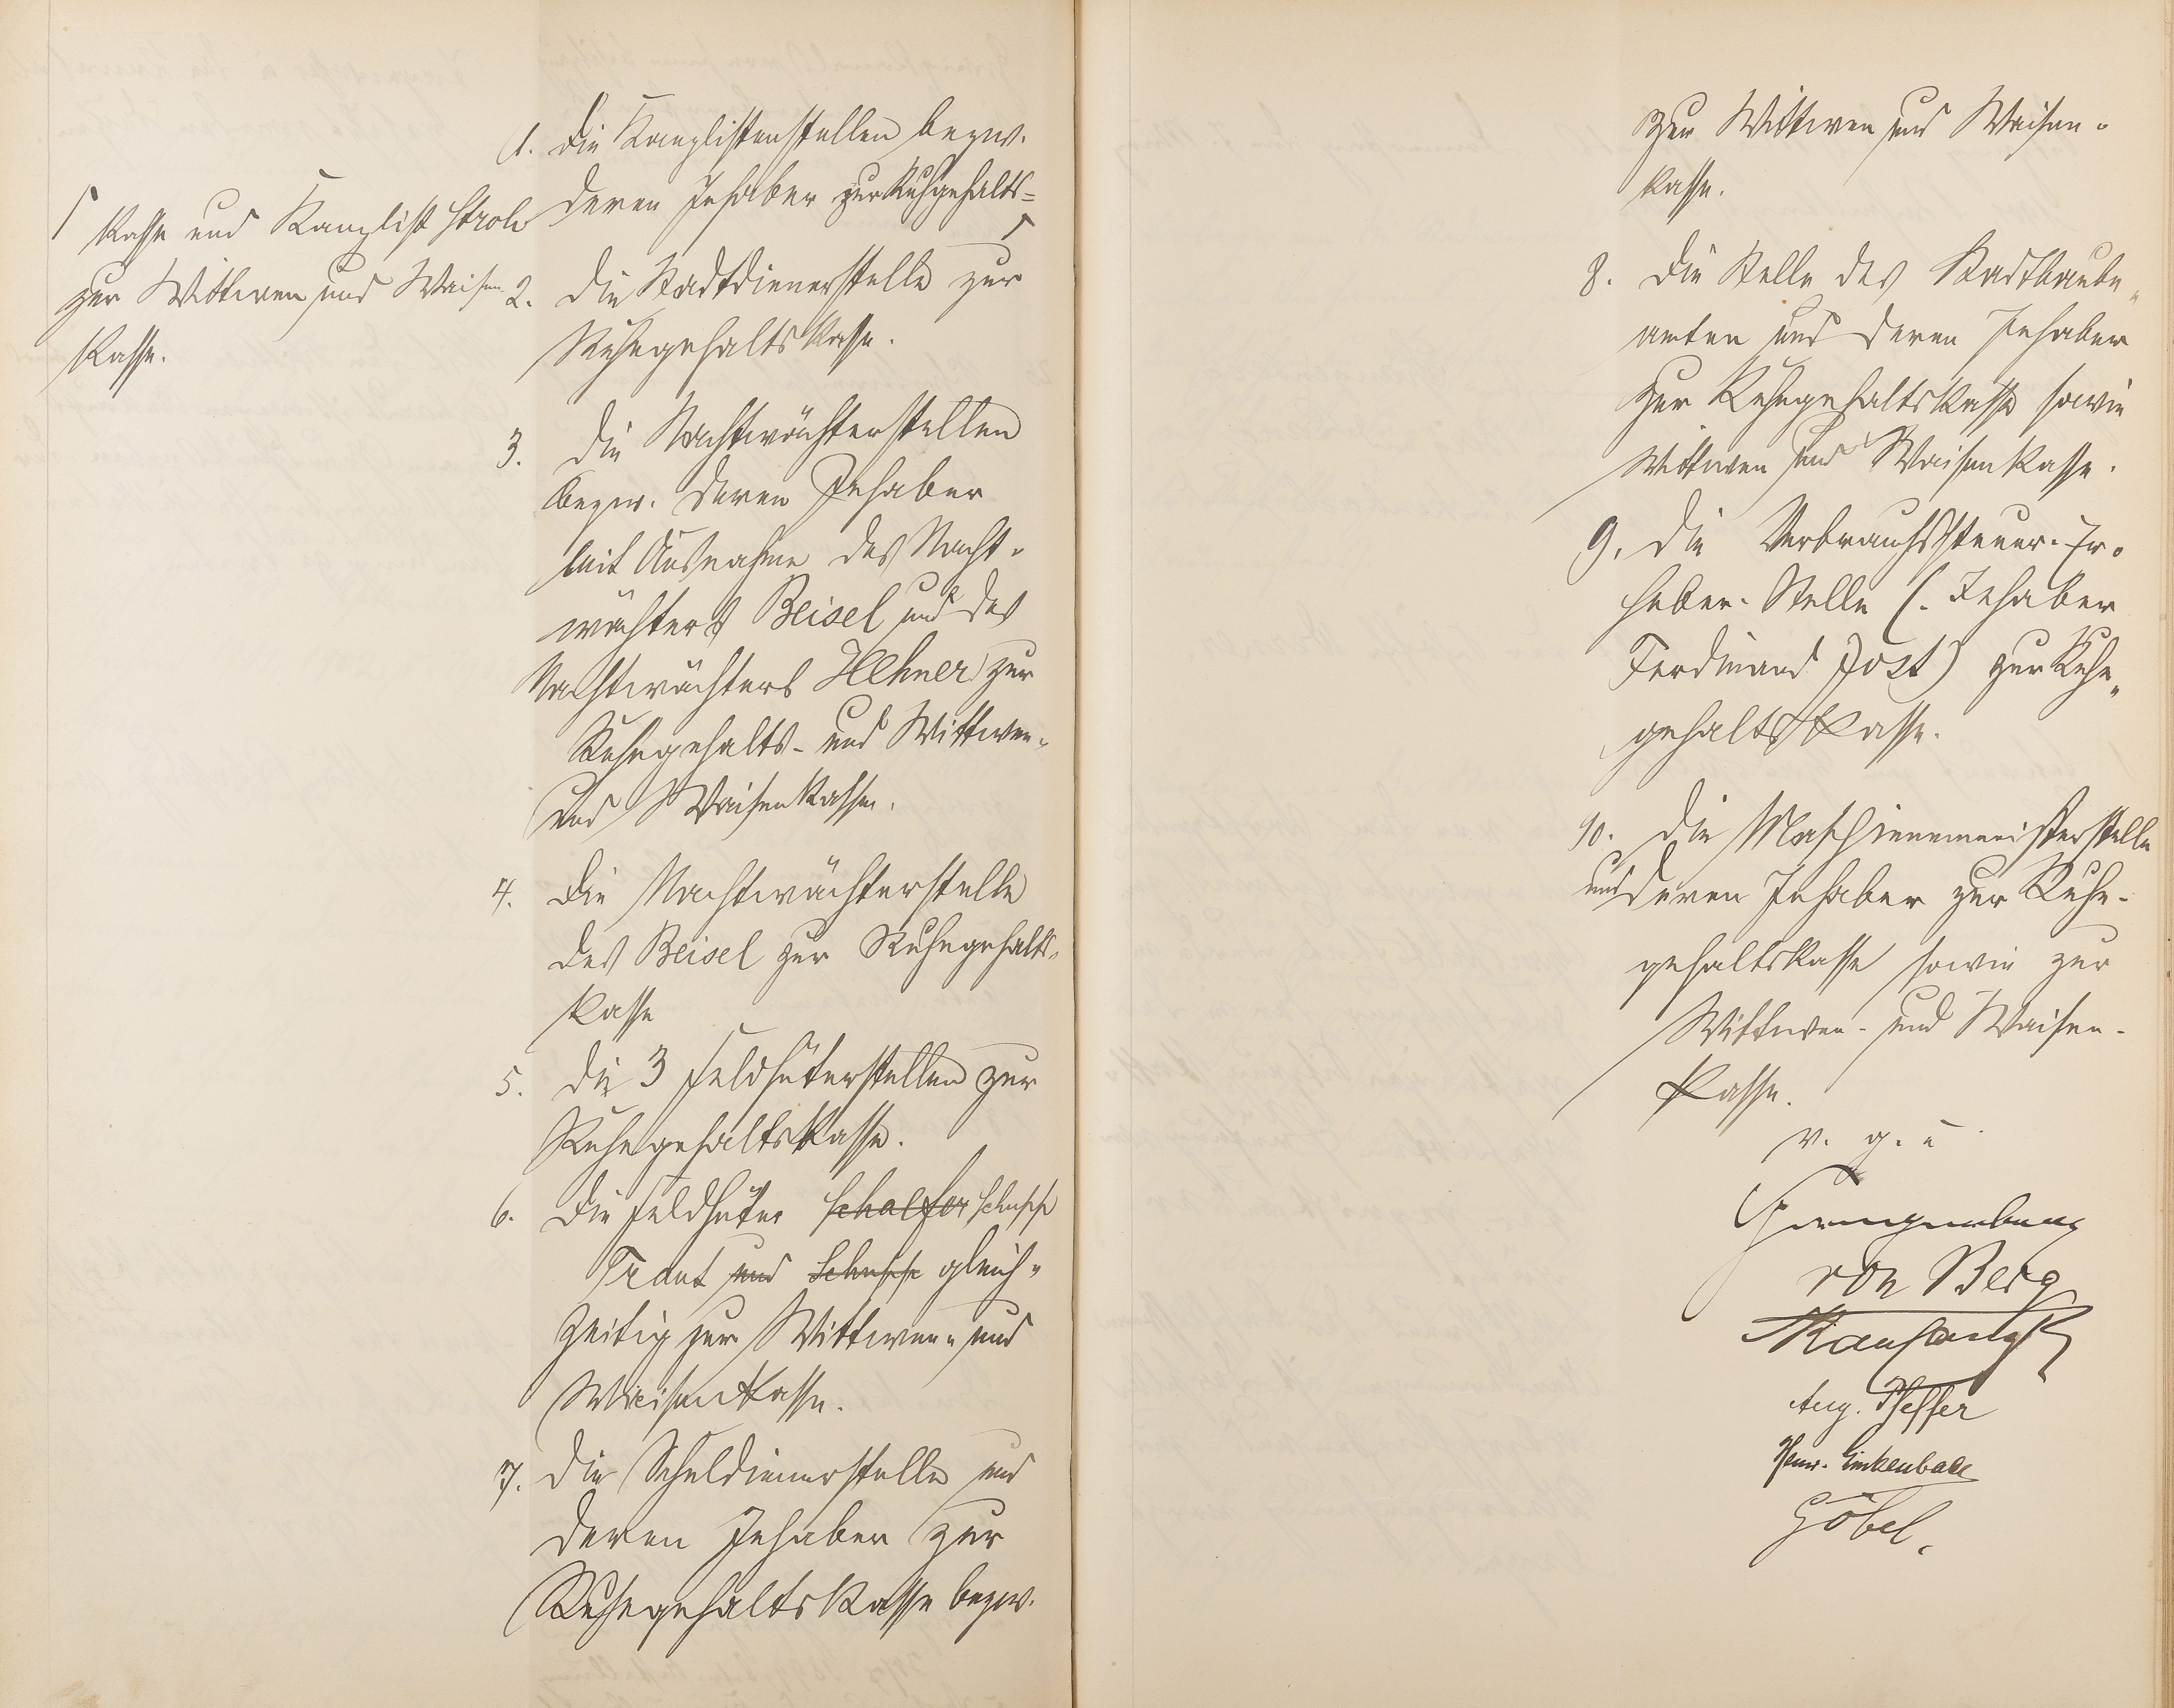 1. Die Kanzlistenstellen bezw.
deren Inhaber zur Ruhgehalts=
⌈
⌈ Kasse und Kanzlist Stroh
zur Wittwen und Waisen
Kasse.
2. Die Stadtdienerstelle zur
Ruhegehaltskasse.
3. Die Nachtwächterstellen
bezw. deren Inhaber
mit Ausnahme des Nacht-
wächters Beisel und des
Nachtwächters Hehner zur
Ruhegehalts- und Wittwen-
und Waisenkasse.
4. Die Nachtwächterstelle
des Beisel zur Ruhegehalts-
kasse
5. Die 3 Feldhüterstellen zur
Ruhegehaltskasse.
6. Die Feldhüter Schaefer Schupp
Traut und Schupp gleich-
zeitig zur Wittwen- und
Waisenkasse.
7. Die Schuldienerstelle und
deren Inhaber zur
Ruhegehaltskasse bezw.
zur Wittwen und Waisen-
kasse.
8. Die Stelle des Stadtbaube-
amten und deren Inhaber
zur Ruhegehaltskasse sowie
Wittwen und Waisenkasse.
9. Die Verbrauchssteuer-Er-
heber-Stelle (. Inhaber
Ferdinand Jost) zur Ruhe-
gehaltskasse.
10. Die Maschinenmeisterstelle
und deren Inhaber zur Ruhe-
gehaltskasse sowie zur
Wittwen- und Waisen-
Kasse.
v. g. u.
von Berg
Aug. Pfeffer
Göbel.